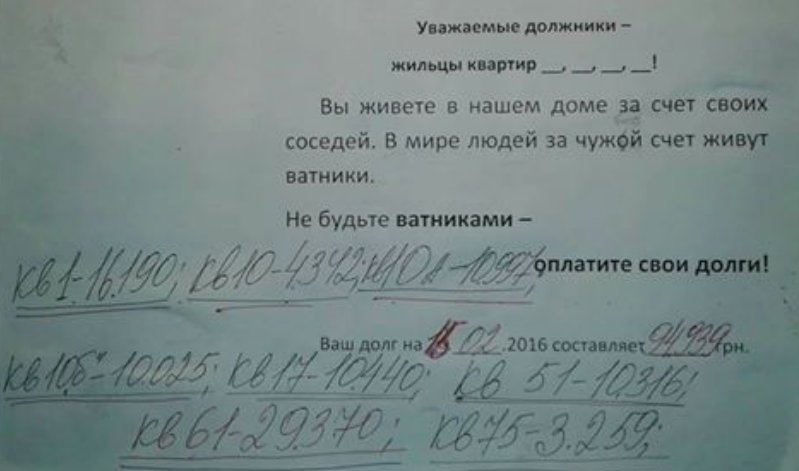 Уважаемые должники –
жильцы квартир __, __, __, __!
Вы живете в нашем доме за счет своих
соседей. В мире людей за чужой счет живут
ватники.
Не будьте ватниками –
оплатите свои долги!
кв1-16.190; кв10-4.342; кв10а-10.997;
Ваш долг на 15 02 .2016 составляет 94.939 грн.
кв10б-10.025; кв17-10.440; кв 51-10.316;
кв61-29.370; кв75-3.259;